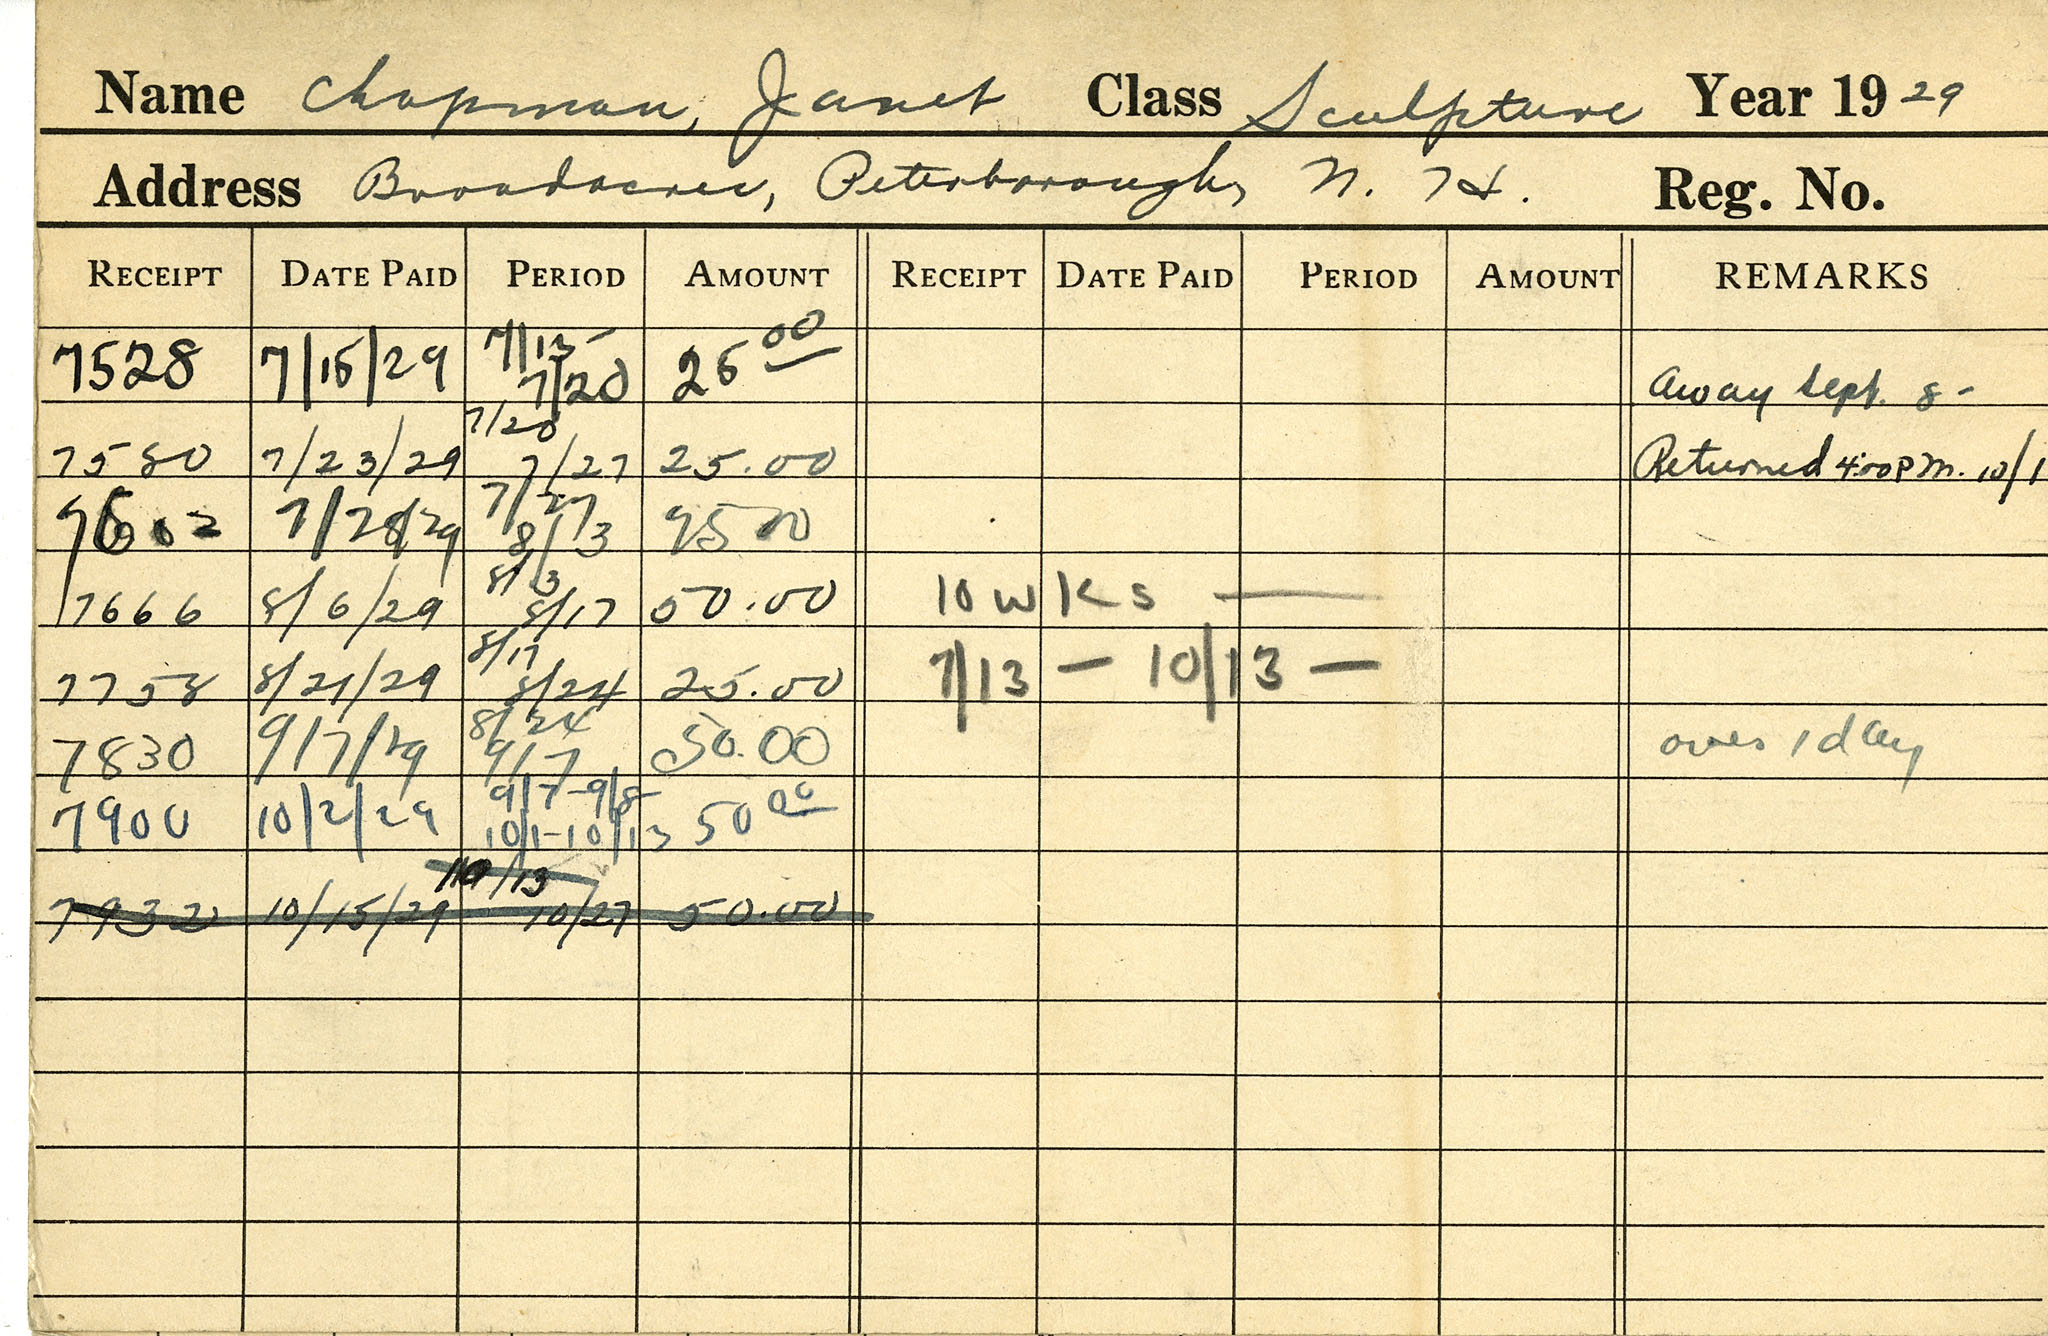 Name Chapman, Janet Class Sculpture Year 1929
Address Broadacres, Peterborough, N. H. Reg. No.
RECEIPT DATE PAID PERIOD AMOUNT RECEIPT DATE PAID PERIOD AMOUNT REMARKS
7528 7/15/29 7/13- 7/20 25 00 Away Sept. 8-
7580 7/23/29 7/20 7/27 25.00 Returned 4:00 P.M. 10/1
7602 7/28/29 7/27 8/3
7666 8/6/29 8/3 8/17 50.00 10 wks —
7758 8/21/29 8/17 8/24 25.00 7/13 — 10/13 —
7830 9/7/29 8/24 9/7 50.00 over 1 day
7900 10/2/29 9/7-9/8 10/1-10/13 50 00
7932 10/15/29 10/13 10/27 50.00